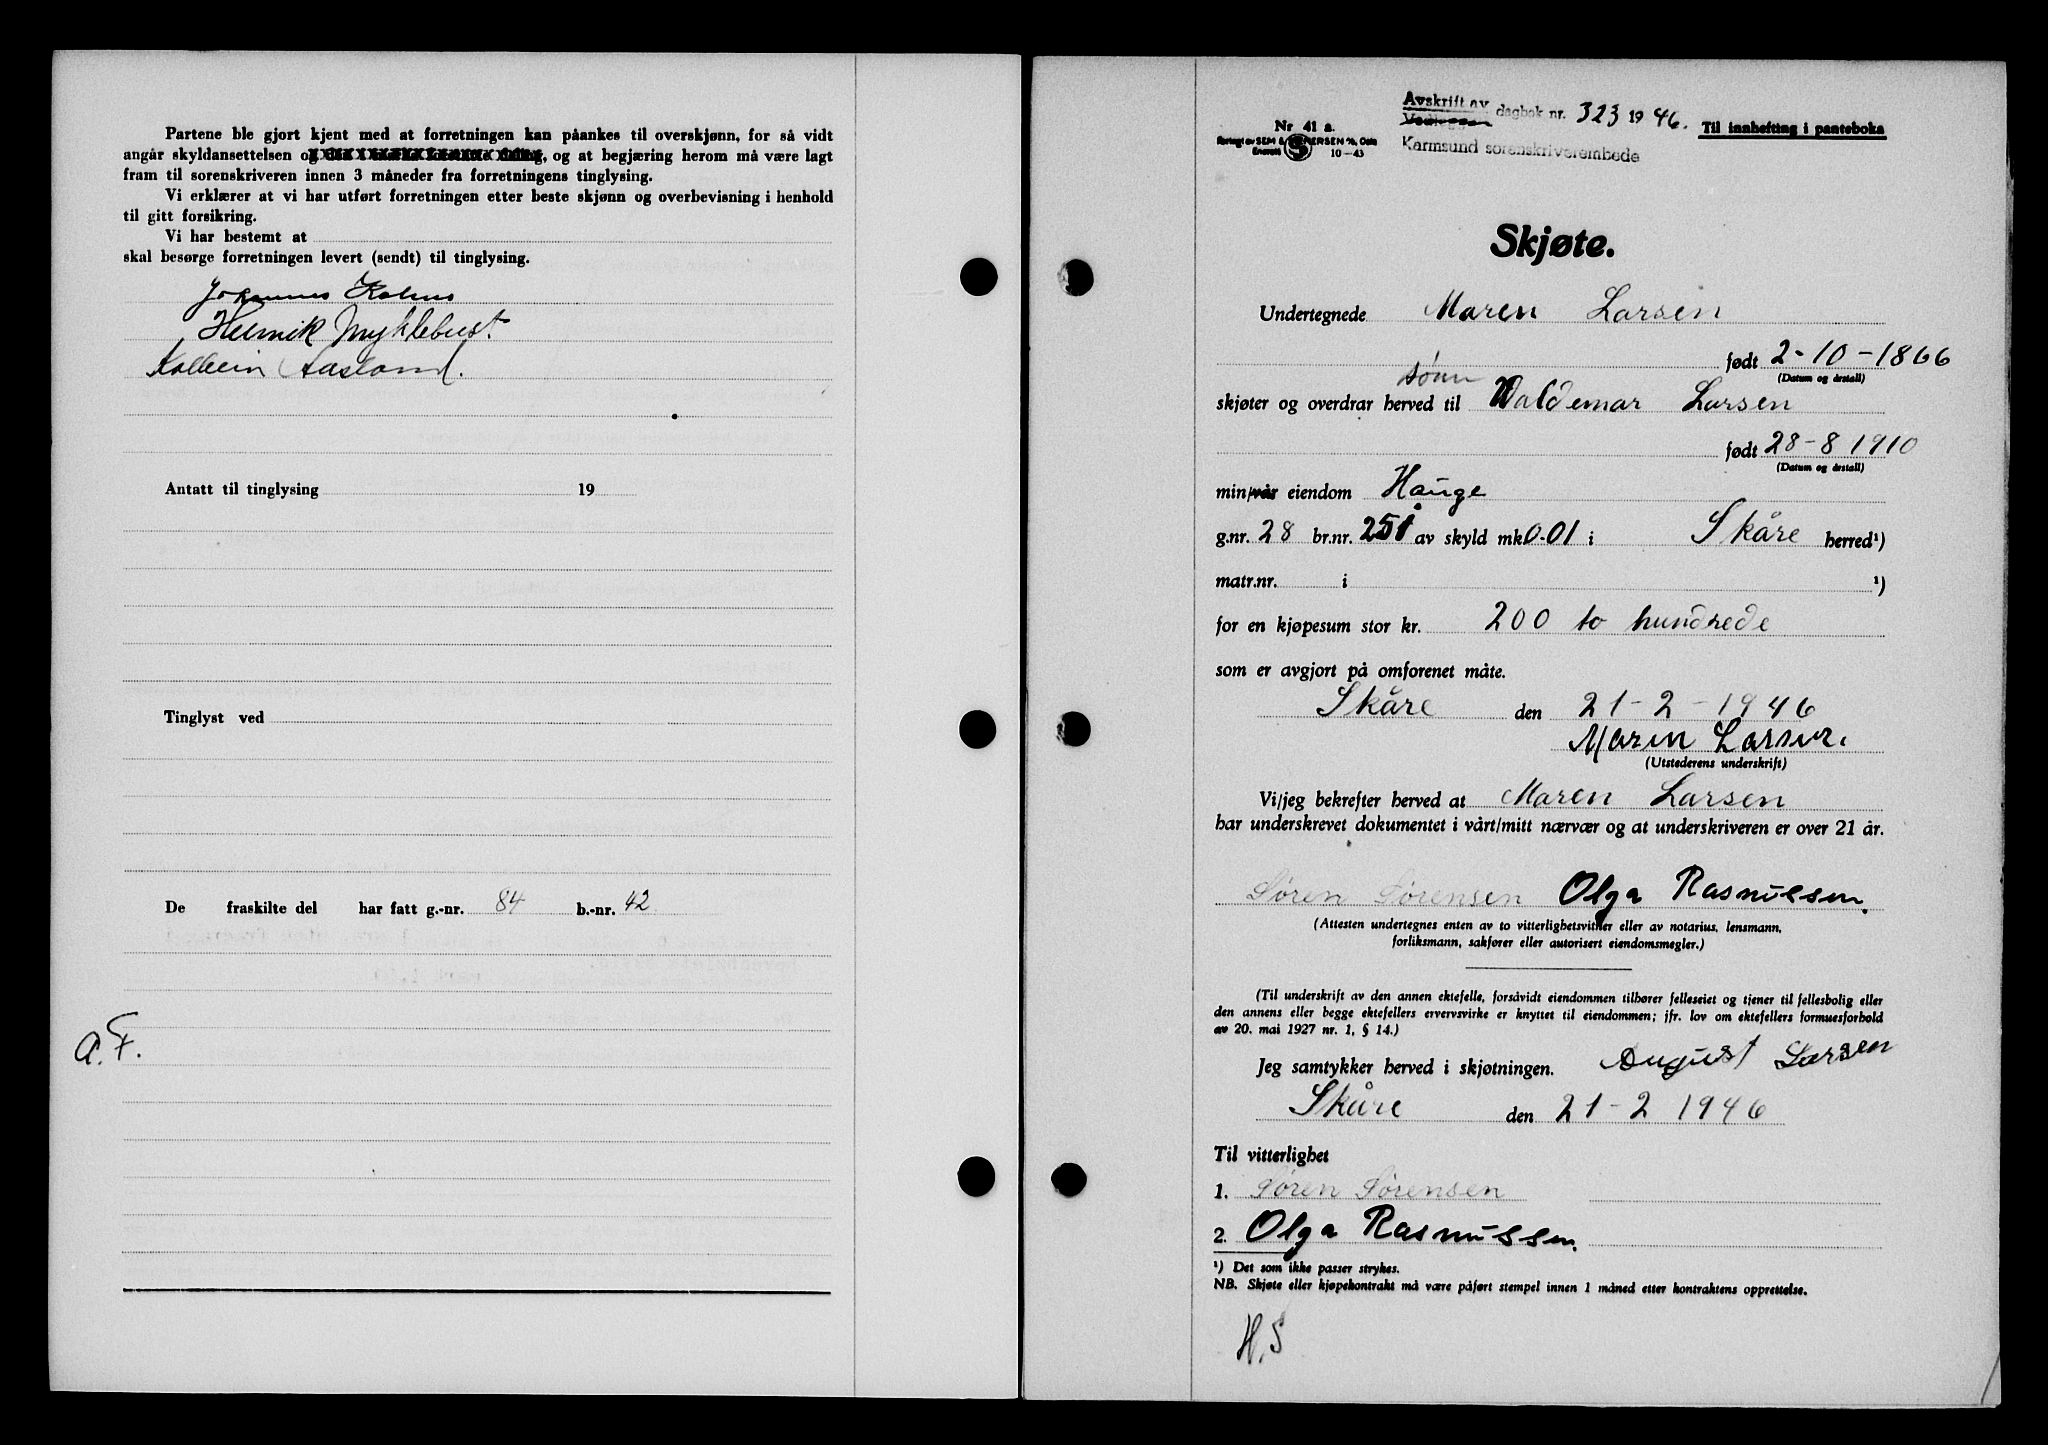 Partene ble gjort kjent med at forretningen kan påankes til overskjønn, for så vidt
angår skyldansettelsen og, og at begjæring herom må være lagt
fram til sorenskriveren innen 3 måneder fra forretningens tinglysing.
Vi erklærer at vi har utført forretningen etter beste skjønn og overbevisning i henhold
til gitt forsikring.
Vi har bestemt at
skal besørge forretningen levert (sendt) til tinglysing.
Johannes
Helmik Myklebust.
Kolbein Aasland.
Antatt til tinglysing 19
Tinglyst ved
De fraskilte del har fatt g.-nr. 84 b.-nr. 42
a. F.
Avskrift av
dagbok nr. 323 1946. Til innhefting i panteboka
Karmsund sorenskriverembede
Nr 41 a.
Forlagt av SEM & STENERSEN A/S, Oslo
Enerett 10-43
Skjøte.
Undertegnede Maren Larsen
født 2-10-1866
(Datum og årstall)
sønn
skjøter og overdrar herved til Valdemar Larsen
født 28-8 1910
(Datum og årstall)
min/vår eiendom Hauge
g.nr. 28 br.nr. 251 av skyld mk 0-01 i Skåre herred¹)
matr.nr. i ¹)
for en kjøpesum stor kr. 200 to hundrede
som er avgjort på omforenet måte.
Skåre den 21-2-1946
Maren Larsen.
(Utstederens underskrift)
Vi/jeg bekrefter herved at Maren Larsen
har underskrevet dokumentet i vårt/mitt nærvær og at underskriveren er over 21 år.
Søren Sørensen Olga Rasmussen.
(Attesten undertegnes enten av to vitterlighetsvitner eller av notarius, lensmann,
forliksmann, sakfører eller autorisert eiendomsmegler.)
(Til underskrift av den annen ektefelle, forsåvidt eiendommen tilhører felleseiet og tjener til fellesbolig eller
den annens eller begge ektefellers ervervsvirke er knyttet til eiendommen; jfr. lov om ektefellers formuesforhold
av 20. mai 1927 nr. 1, § 14.)
Jeg samtykker herved i skjøtningen. August Larsen
Skåre den 21-2 1946
Til vitterlighet
1. Søren Sørensen
2. Olga Rasmussen.
¹) Det som ikke passer strykes.
NB. Skjøte eller kjøpekontrakt må være påført stempel innen 1 måned etter kontraktens opprettelse.
H.S